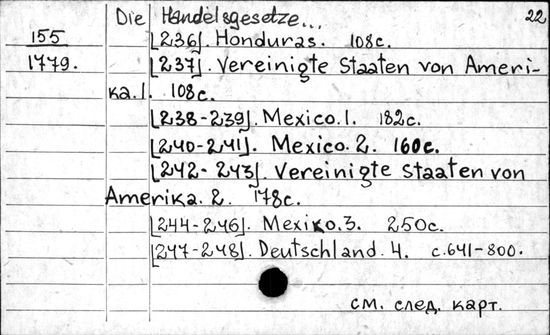 Die Handelsgesetze... 22
155 [236]. Honduras. 108c.
1779. [237]. Vereinigte Staaten von Ameri-
ka. 1. 108c.
[238-239]. Mexico. 1. 182c.
[240-241]. Mexico. 2. 160c.
[242-243]. Vereinigte Staaten von
Amerika. 2. 178c.
[244-246]. Mexiko. 3. 250c.
[247-248]. Deutschland. 4. c. 641-800.
см. след. карт.